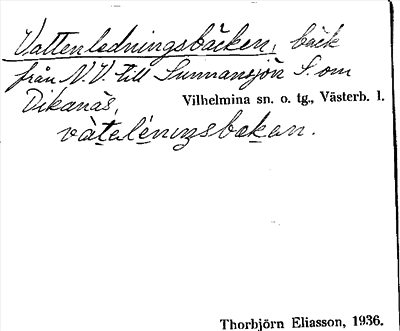 Vattenledningsbäcken, bäck
från N.V. till Sunnansjön S. om
Dikanäs,
Vilhelmina sn. o. tg., Västerb. l.
vàteléningsbekan.
Thorbjörn Eliasson, 1936.